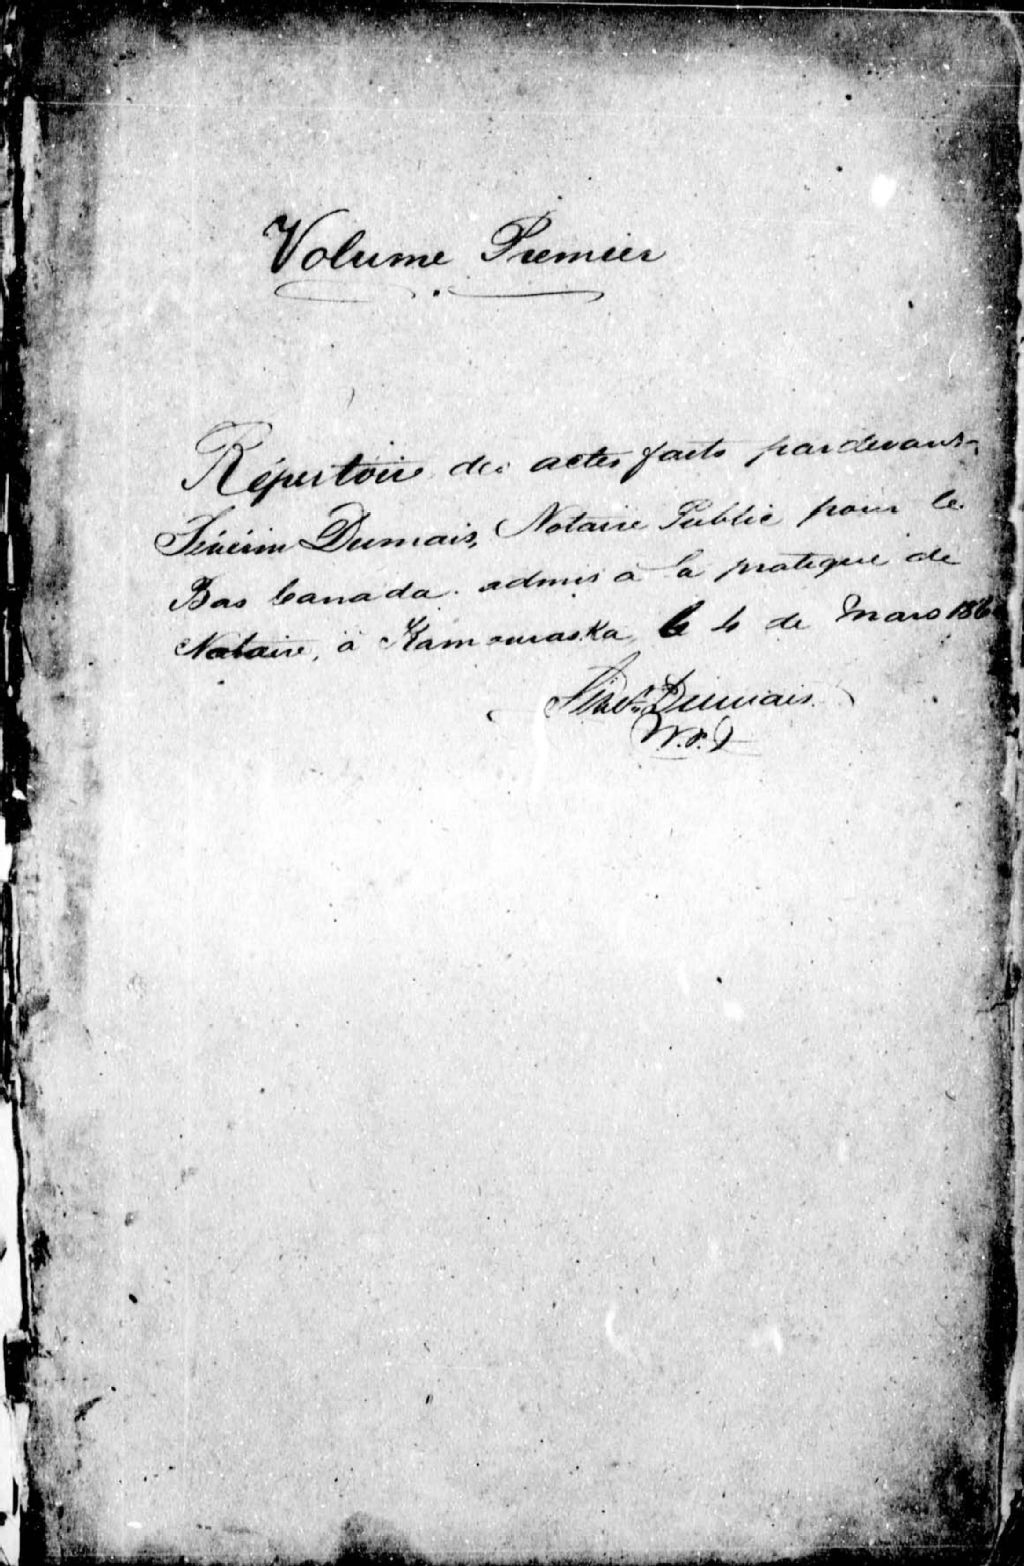 Volume Premier
Répertoire des actes faits pardevant
Sévérin Dumais, Notaire Public pour le
Bas Canada. admis à la pratique de
Notaire, à Kamouraska, le 4 de Mars
Dumais.
N.P.